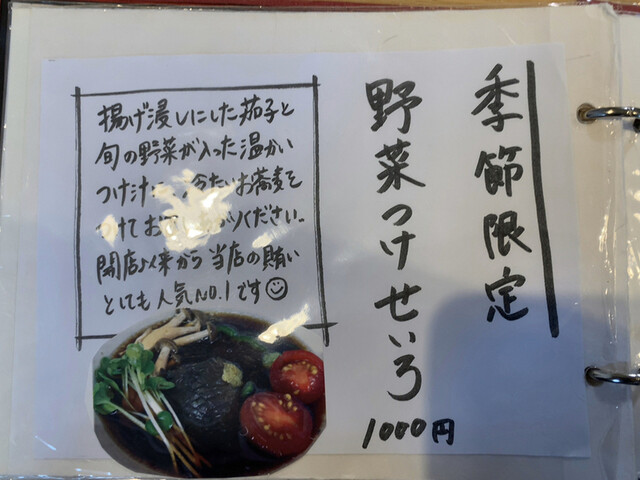 季節限定
野菜つけせいろ
1000円
揚げ浸しにした茄子と
旬の野菜が入った温かい
つけ汁 冷たいお蕎麦を
つけてお がりください。
開店以来から当店の賄い
としても人気NO.1です☺